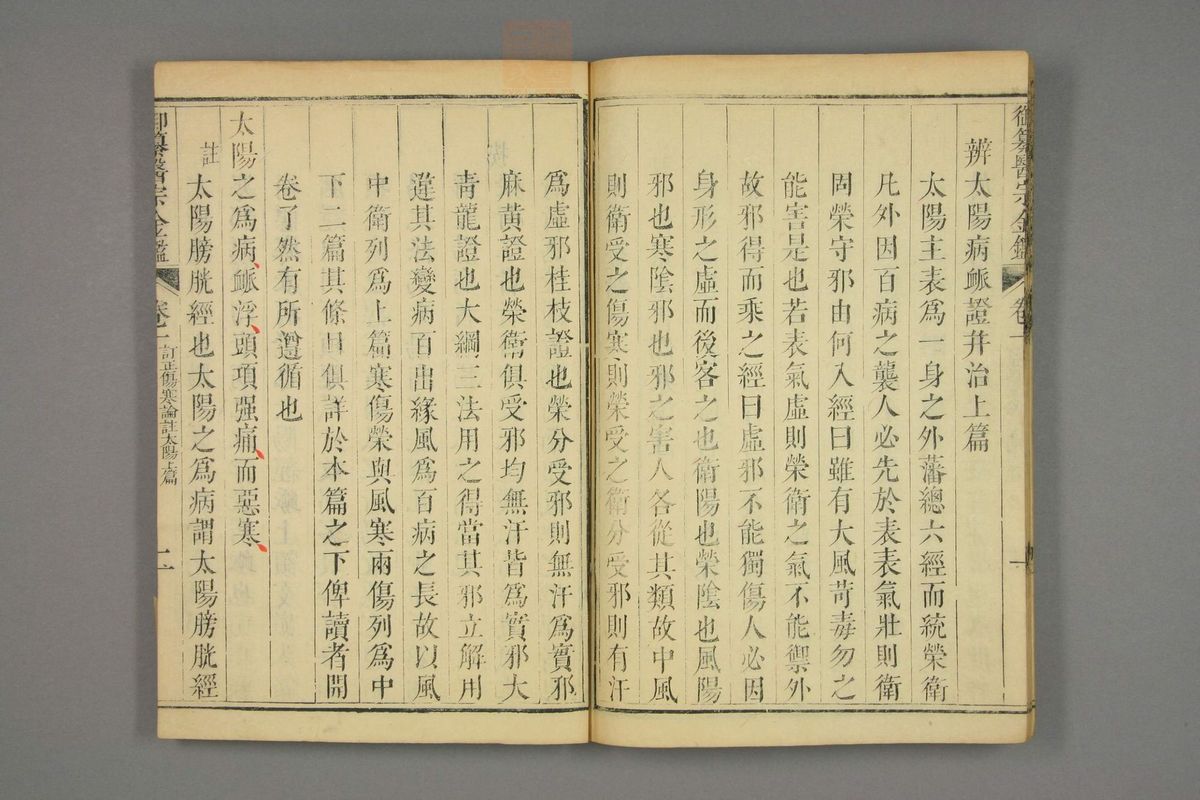 御纂醫宗金鑑 卷一 一
辨太陽病脈證并治上篇
太陽主表爲一身之外藩總六經而統榮衛
凡外因百病之襲人必先於表表氣壯則衛
固榮守邪由何入經曰雖有大風苛毒勿之
能害是也若表氣虛則榮衛之氣不能禦外
故邪得而乘之經曰虛邪不能獨傷人必因
身形之虛而後客之也衛陽也榮陰也風陽
邪也寒陰邪也邪之害人各從其類故中風
則衛受之傷寒則榮受之衛分受邪則有汗
爲虛邪桂枝證也榮分受邪則無汗爲實邪
麻黄證也榮衛俱受邪均無汗皆爲實邪大
青龍證也大綱三法用之得當其邪立解用
違其法變病百出緣風爲百病之長故以風
中衛列爲上篇寒傷榮與風寒兩傷列爲中
下二篇其條目俱詳於本篇之下俾讀者開
卷了然有所遵循也
太陽之爲病脈浮頭項强痛而惡寒
註 太陽膀胱經也太陽之爲病謂太陽膀胱經
御纂醫宗金鑑 卷一 訂正傷寒論註太陽上篇